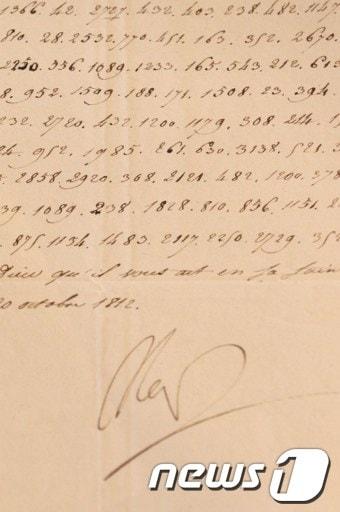 1366. 42. 2727. 432. 403. 238. 482. 1147
810. 28. 2532. 770. 451. 163. 352. 2670.
2250. 336. 1089. 1233. 165. 543. 212. 613
8. 952. 1599. 188. 171. 1508. 23. 394.
232. 2720. 432. 1200. 1179. 308. 244.
24. 952. 1985. 261. 630. 3138. 521. 3
. 2858. 2920. 368. 2121. 482. 1200. 378
39. 1089. 238. 1828. 810. 836. 1151. 2
. 875. 1134. 1483. 2117. 2250. 2729. 352
Dieu qu'il vous ait en sa Sain
20 octobre 1812.
news1